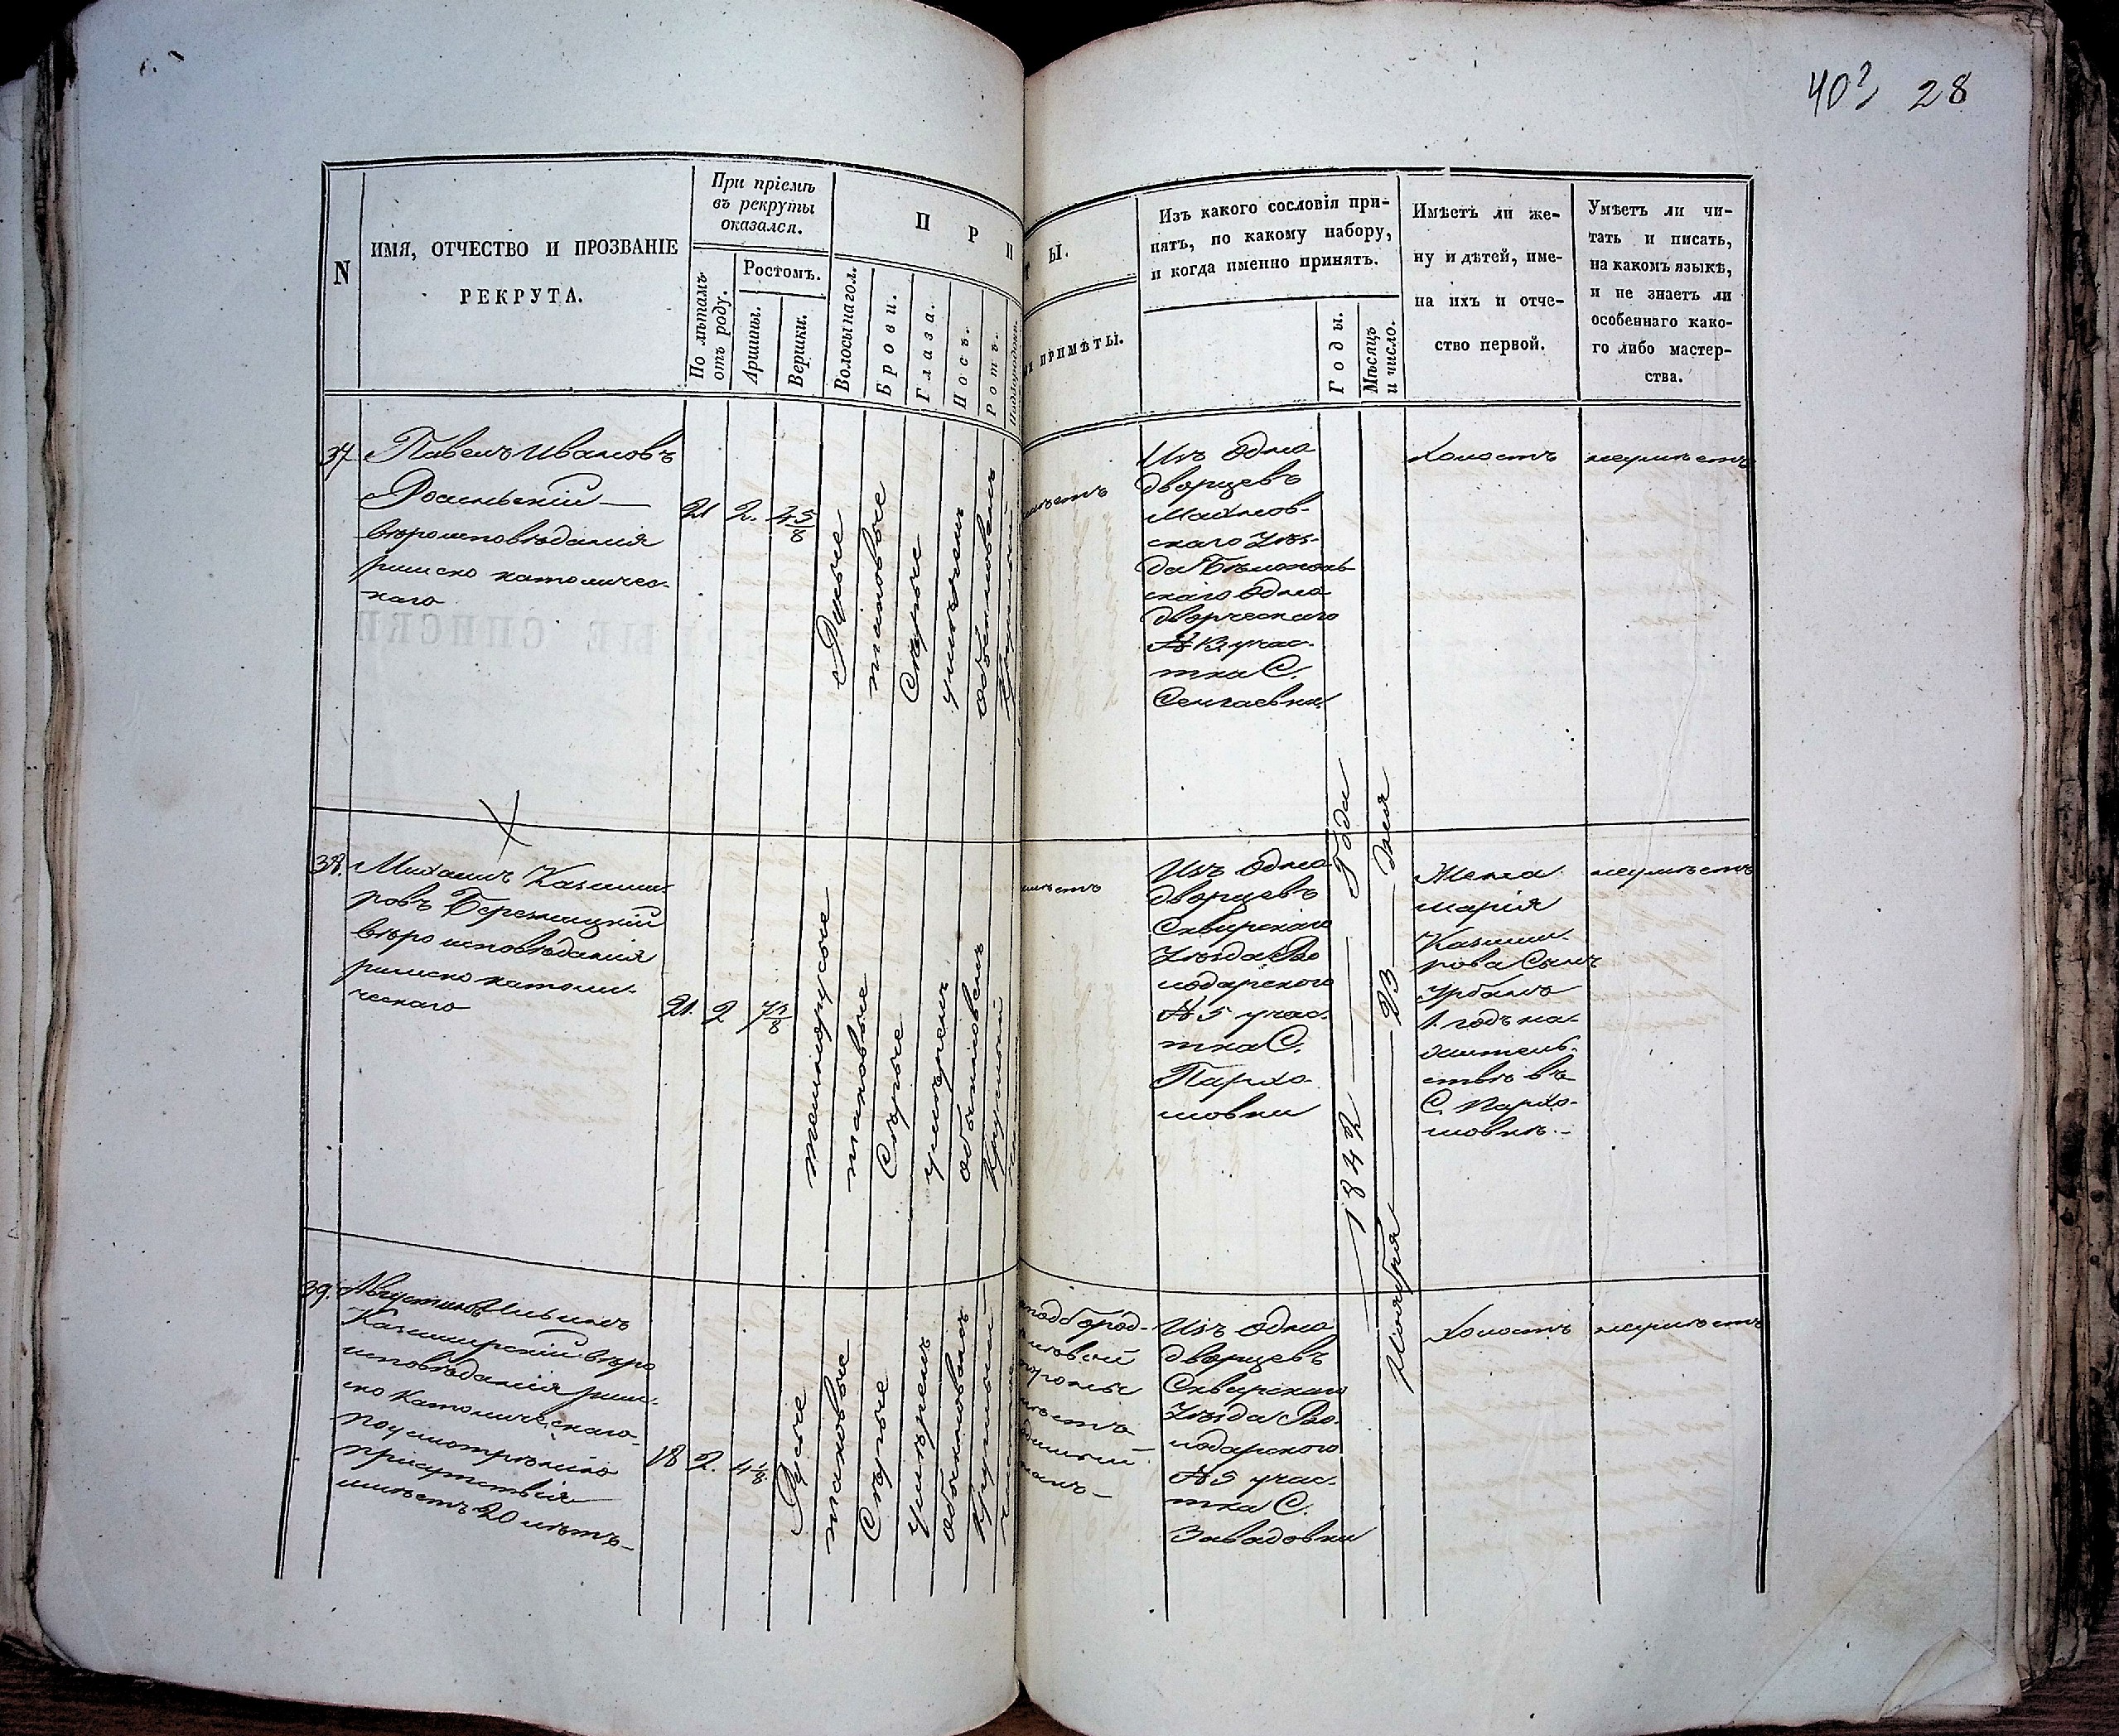 28
N
ИМЯ, ОТЧЕСТВО И ПРОЗВАНІЕ
РЕКРУТА.
При пріемѣ
въ рекруты
оказался.
По лѣтамъ
отъ роду.
Ростомъ.
Аршины.
Вершки.
П Р И
Волосы на гол.
Брови.
Глаза.
Носъ.
Ротъ.
Подбородокъ.
Ы.
ПРИМѢТЫ.
Изъ какого сословія при-
нятъ, по какому набору,
и когда именно принятъ.
Годы.
Мѣсяцъ
и число.
Имѣетъ ли же-
ну и дѣтей, име-
на ихъ и отче-
ство первой.
Умѣетъ ли чи-
тать и писать,
на какомъ языкѣ,
и не знаетъ ли
особеннаго како-
го либо мастер-
ства.
37
Павелъ Ивановъ
вѣроисповѣданія
римско католичес-
каго
21
2.
4 5/8
Русые
таковые
Сѣрые
умѣренъ
обыкновенъ
Круглый
Изъ Одно
дворцевъ
Махнов-
скаго Уѣз-
да
скаго Одно
дворческаго
№ 13 учас-
тка С.
Холостъ
неумѣетъ
38.
Михаилъ Казими-
ровъ
вѣроисповѣданія
римско католи-
ческаго
21.
2
темнорусые
таковые
Сѣрые
умѣренъ
обыкновенъ
Круглый
Изъ Одно-
дворцевъ
Сквирскаго
Уѣзда Во
лодарского
№ 5 учас-
тка С.
Пархо-
мовки
1842 Года
Ноября 23 Дня
Жена
Марія
Казими-
рова Сынъ
Урбанъ
1. годъ на-
жительс-
ствѣ въ
С. Пархо-
мовкѣ.-
неумѣетъ
39.
Августинъ
Казимирскій вѣро
исповѣданія рим-
ско католическаго-
по усмотрѣнію
присутствія
имѣетъ 20 лѣтъ-
18
2.
4 1/8
Русые
таковые
Сѣрые
умѣренъ
обыкновенъ
Круглый
подбород-
Изъ Одно
дворцевъ
Сквирскаго
Уѣзда Во-
лодарского
№ 5 учас-
тка С.
Завадовки
Холостъ
неумѣетъ